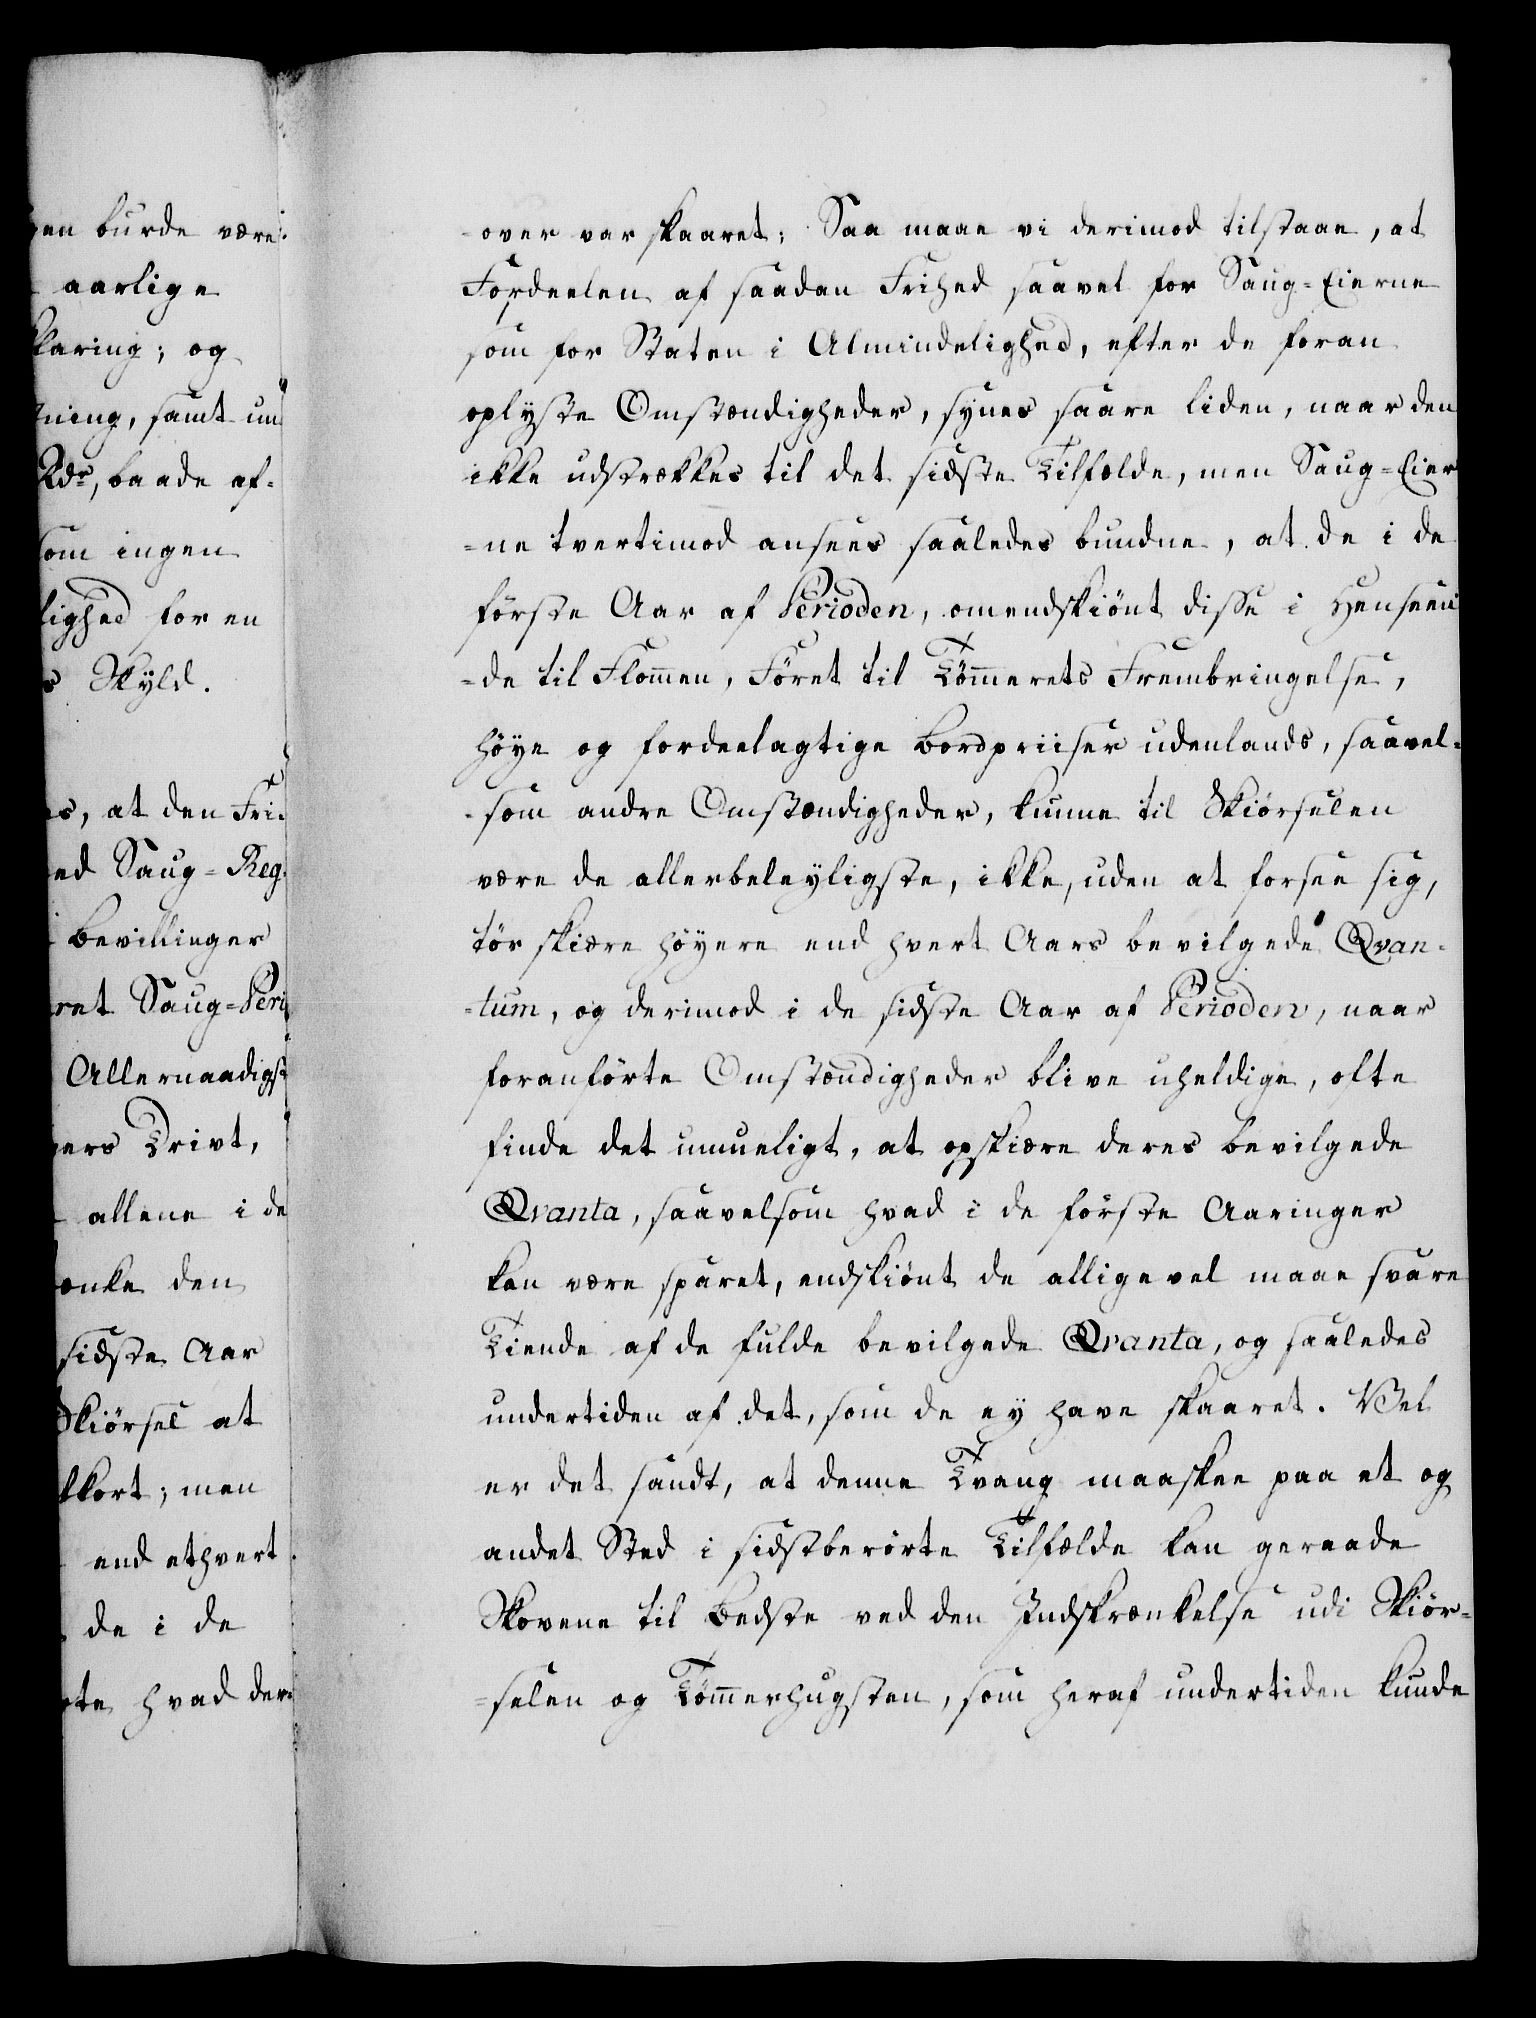 en burde være
aarlige
klaring; og
ning, samt un
Rdr, baade af-
som ingen
lighed for en
s Skyld.
es, at den Fri-
ed Saug-Reg-
bevillinger
ret Saug-Peri
Allernaadigst
gers Drivt,
allene i de
ænke den
sidste Aar
Skiörsel at
kkort; men
end ethvert
de i de
te hvad der-
-over var skaaret; Saa maae vi derimod tilstaae, at
Fordeelen af saadan Frihed saavel for Saug-Eierne
som for Staten i Almindelighed, efter de foran
oplyste Omstændigheder, synes saare liden, naar den
ikke udstrækkes til det sidste Tilfælde, men Saug-Eier
-ne tvertimod ansees saaledes bundne, at de i de
förste Aar af Perioden, omendskiönt disse i Henseen
-de til Flom̄en, Föret til Töm̄erets Frembringelse,
höye og fordeelagtige Bordpriiser udenlands, saavel-
-som andre Omstændigheder, kunne til Skiörselen
være de allerbeleyligste, ikke, uden at forsee sig,
tör skiære höyere end hvert Aars bevilgede Qvan-
-tum, og derimod i de sidste Aar af Perioden, naar
foranförte Omstændigheder blive uheldige, ofte
finde det umueligt, at opskiære deres bevilgede
Qvanta, saavelsom hvad i de förste Aaringer
kan være sparet, endskiönt de alligevel maae svare
Tiende af de fulde bevilgede Qvanta, og saaledes
undertiden af det, som de ey have skaaret. Vel
er det sandt, at denne Tvang maaskee paa et og
andet Sted i sidstberörte Tilfælde kan geraade
Skovene til Bedste ved den Indskrænkelse udi Skiör-
-selen og Töm̄erhugsten, som heraf undertiden kunde